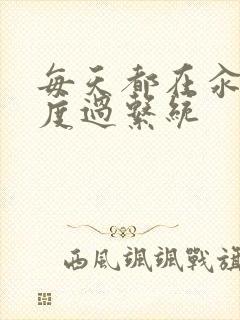 每天都在汆
度過繫統
西風颯颯戰旗